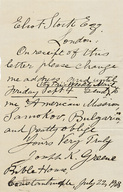 Eliot Stock Esq
London.
On receipt of this
letter please change
my address
Friday Sept
me American Mission
Samokov, Bulgaria
and greatly oblige
Yours Very Truly
Joseph K. Greene
Bible House,
Constantinople July 22, 1908